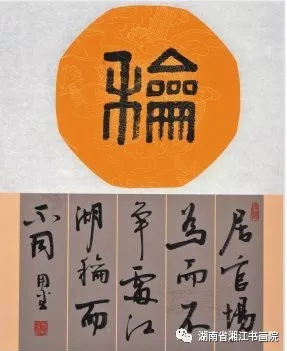 龢
居官場
為而不
爭處江
湖龢而
不同
湖南省湘江书画院